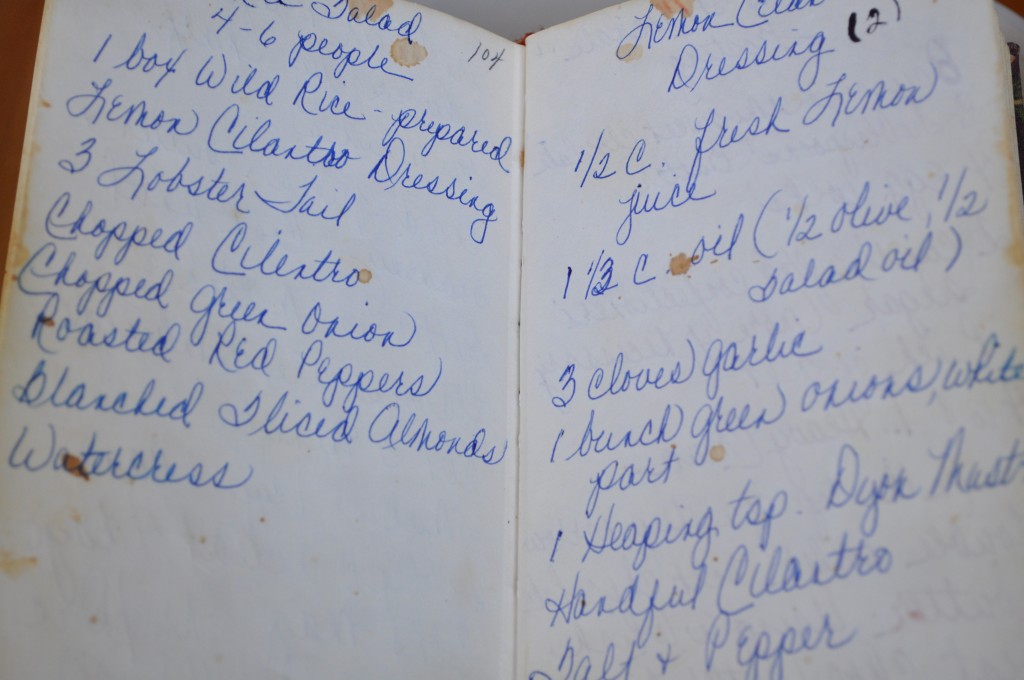 Salad
4-6 people
104
1 box Wild Rice - prepared
Lemon Cilantro Dressing
3 Lobster Tail
Chopped Cilentro
Chopped green onion
Roasted Red Peppers
Blanched Sliced Almonds
Watercress
Lemon
Dressing (2)
1/2 c. fresh Lemon
juice
1 1/3 c. oil (1/2 olive, 1/2
salad oil)
3 cloves garlic
1 bunch green onions, white
part
1 Heaping tsp. Dijon Must
Handful Cilantro
Salt + Pepper